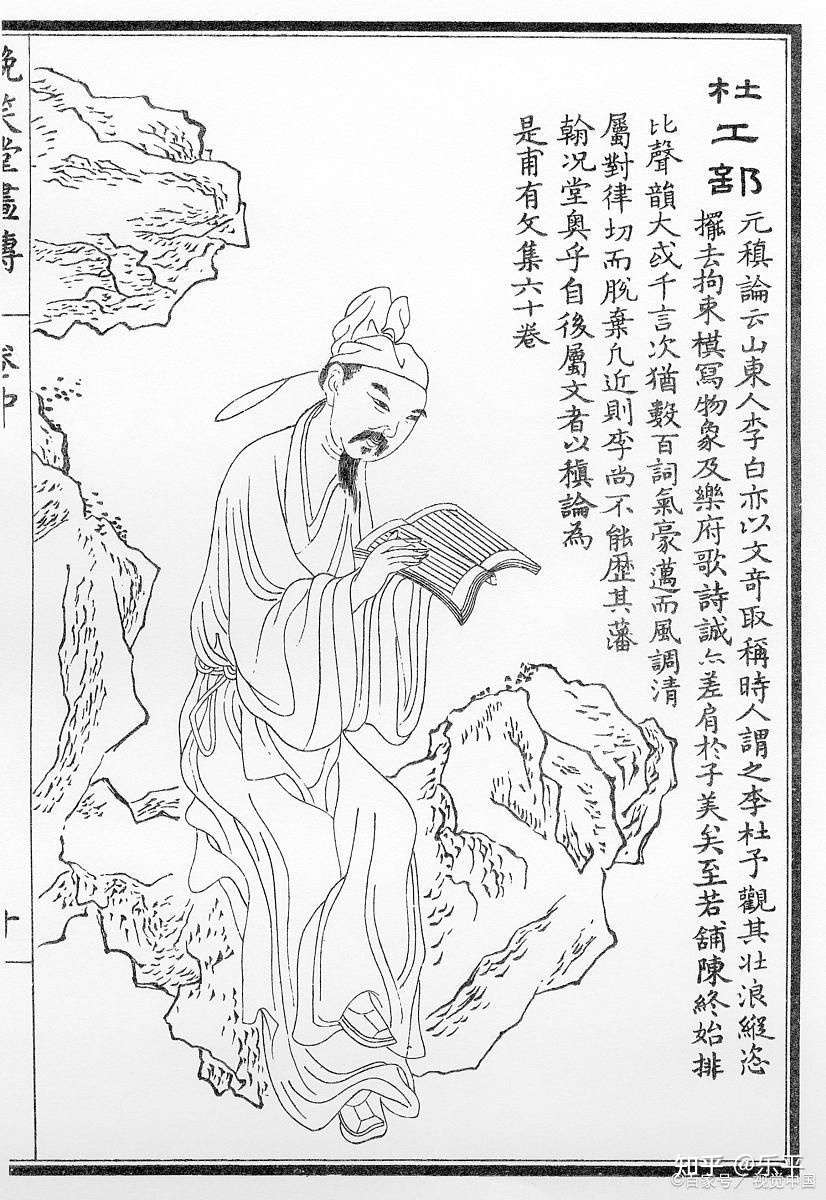 杜工部
元稹論云山東人李白亦以文竒取稱時人謂之李杜予觀其壯浪縱恣
擺去拘束模寫物象及樂府歌詩誠亦差肩於子美矣至若舖陳終始排
比聲韻大或千言次猶數百詞氣豪邁而風調清
屬對律切而脫棄凡近則李尚不能歷其藩
翰况堂奧乎自後屬文者以稹論為
是甫有文集六十卷
晚笑堂畫傳
卷中
十
知乎 @乐平
©百家号/视觉中国